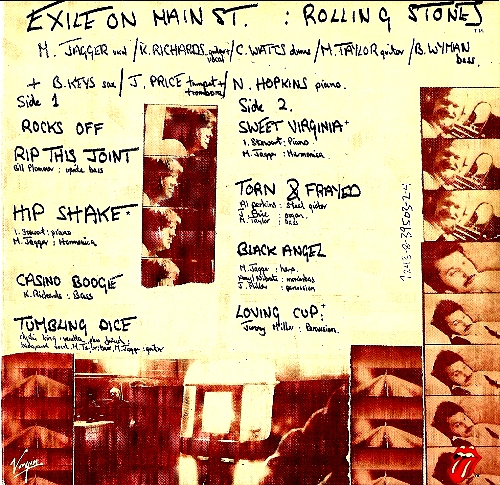 EXILE ON MAIN ST. : ROLLING STONES
M. JAGGER vocal / K. RICHARDS guitar + vocal / C. WATTS drums / M. TAYLOR guitar / B. WYMAN bass.
+ B. KEYS sax / J. PRICE trumpet + trombone / N. HOPKINS piano.
Side 1
ROCKS OFF
RIP THIS JOINT
Bill Plummer : upright bass
HIP SHAKE*
I. Stewart : piano
M. Jagger : Harmonica
CASINO BOOGIE
K. Richards : Bass
TUMBLING DICE
M. Taylor : bass, M. Jagger : guitar
Side 2.
SWEET VIRGINIA+
I. Stewart : Piano
M. Jagger : Harmonica
TORN & FRAYED
Al Perkins : steel guitar
J. Price : organ
M. Taylor : bass
BLACK ANGEL
M. Jagger : harp
: marimbas
J. Miller : percussion
LOVING CUP+
Jimmy Miller : Percussion.
Virgin